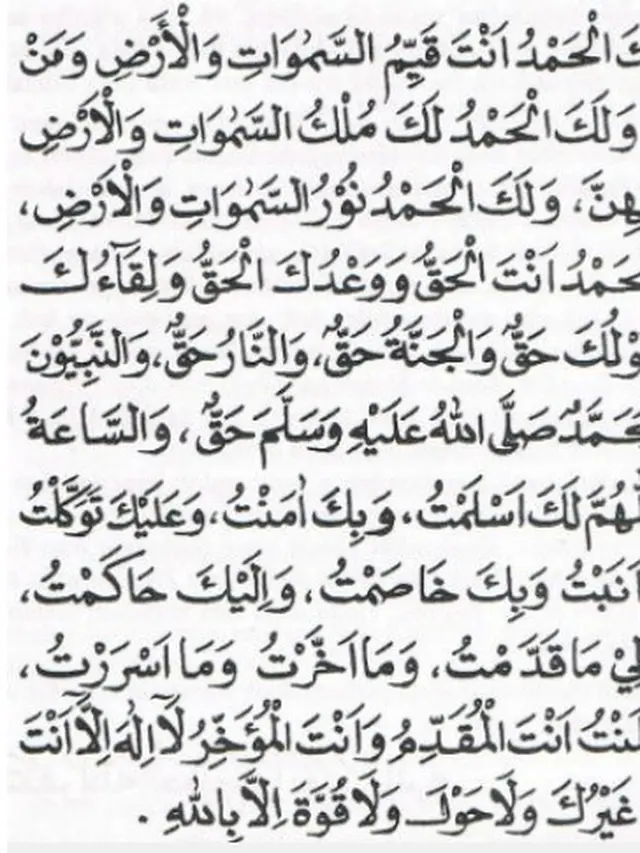 كَ الْحَمْدُ اَنْتَ قَيِّمُ السَّمٰوَاتِ وَالْأَرْضِ وَمَنْ
وَلَكَ الْحَمْدُ لَكَ مُلْكُ السَّمٰوَاتِ وَالْاَرْضِ
هِنَّ، وَلَكَ الْحَمْدُ نُوْرُ السَّمٰوَاتِ وَالْاَرْضِ،
حَمْدُ اَنْتَ الْحَقُّ وَوَعْدُكَ الْحَقُّ وَلِقَآءُكَ
وْلُكَ حَقٌّ وَالْجَنَّةُ حَقٌّ، وَالنَّارُ حَقٌّ، وَالنَّبِيُّوْنَ
حَمَّدٌ صَلَّى اللهُ عَلَيْهِ وَسَلَّمَ حَقٌّ، وَالسَّاعَةُ
لّٰهُمَّ لَكَ اَسْلَمْتُ، وَبِكَ اٰمَنْتُ، وَعَلَيْكَ تَوَكَّلْتُ
اَنَبْتُ وَبِكَ خَاصَمْتُ، وَاِلَيْكَ حَاكَمْتُ،
لِيْ مَا قَدَّمْتُ، وَمَا اَخَّرْتُ وَمَا اَسْرَرْتُ،
لَنْتُ اَنْتَ الْمُقَدِّمُ وَاَنْتَ الْمُؤَخِّرُ لَآاِلٰهَ اِلَّآ اَنْتَ
غَيْرُكَ وَلَا حَوْلَ وَلَا قُوَّةَ اِلَّا بِاللهِ.